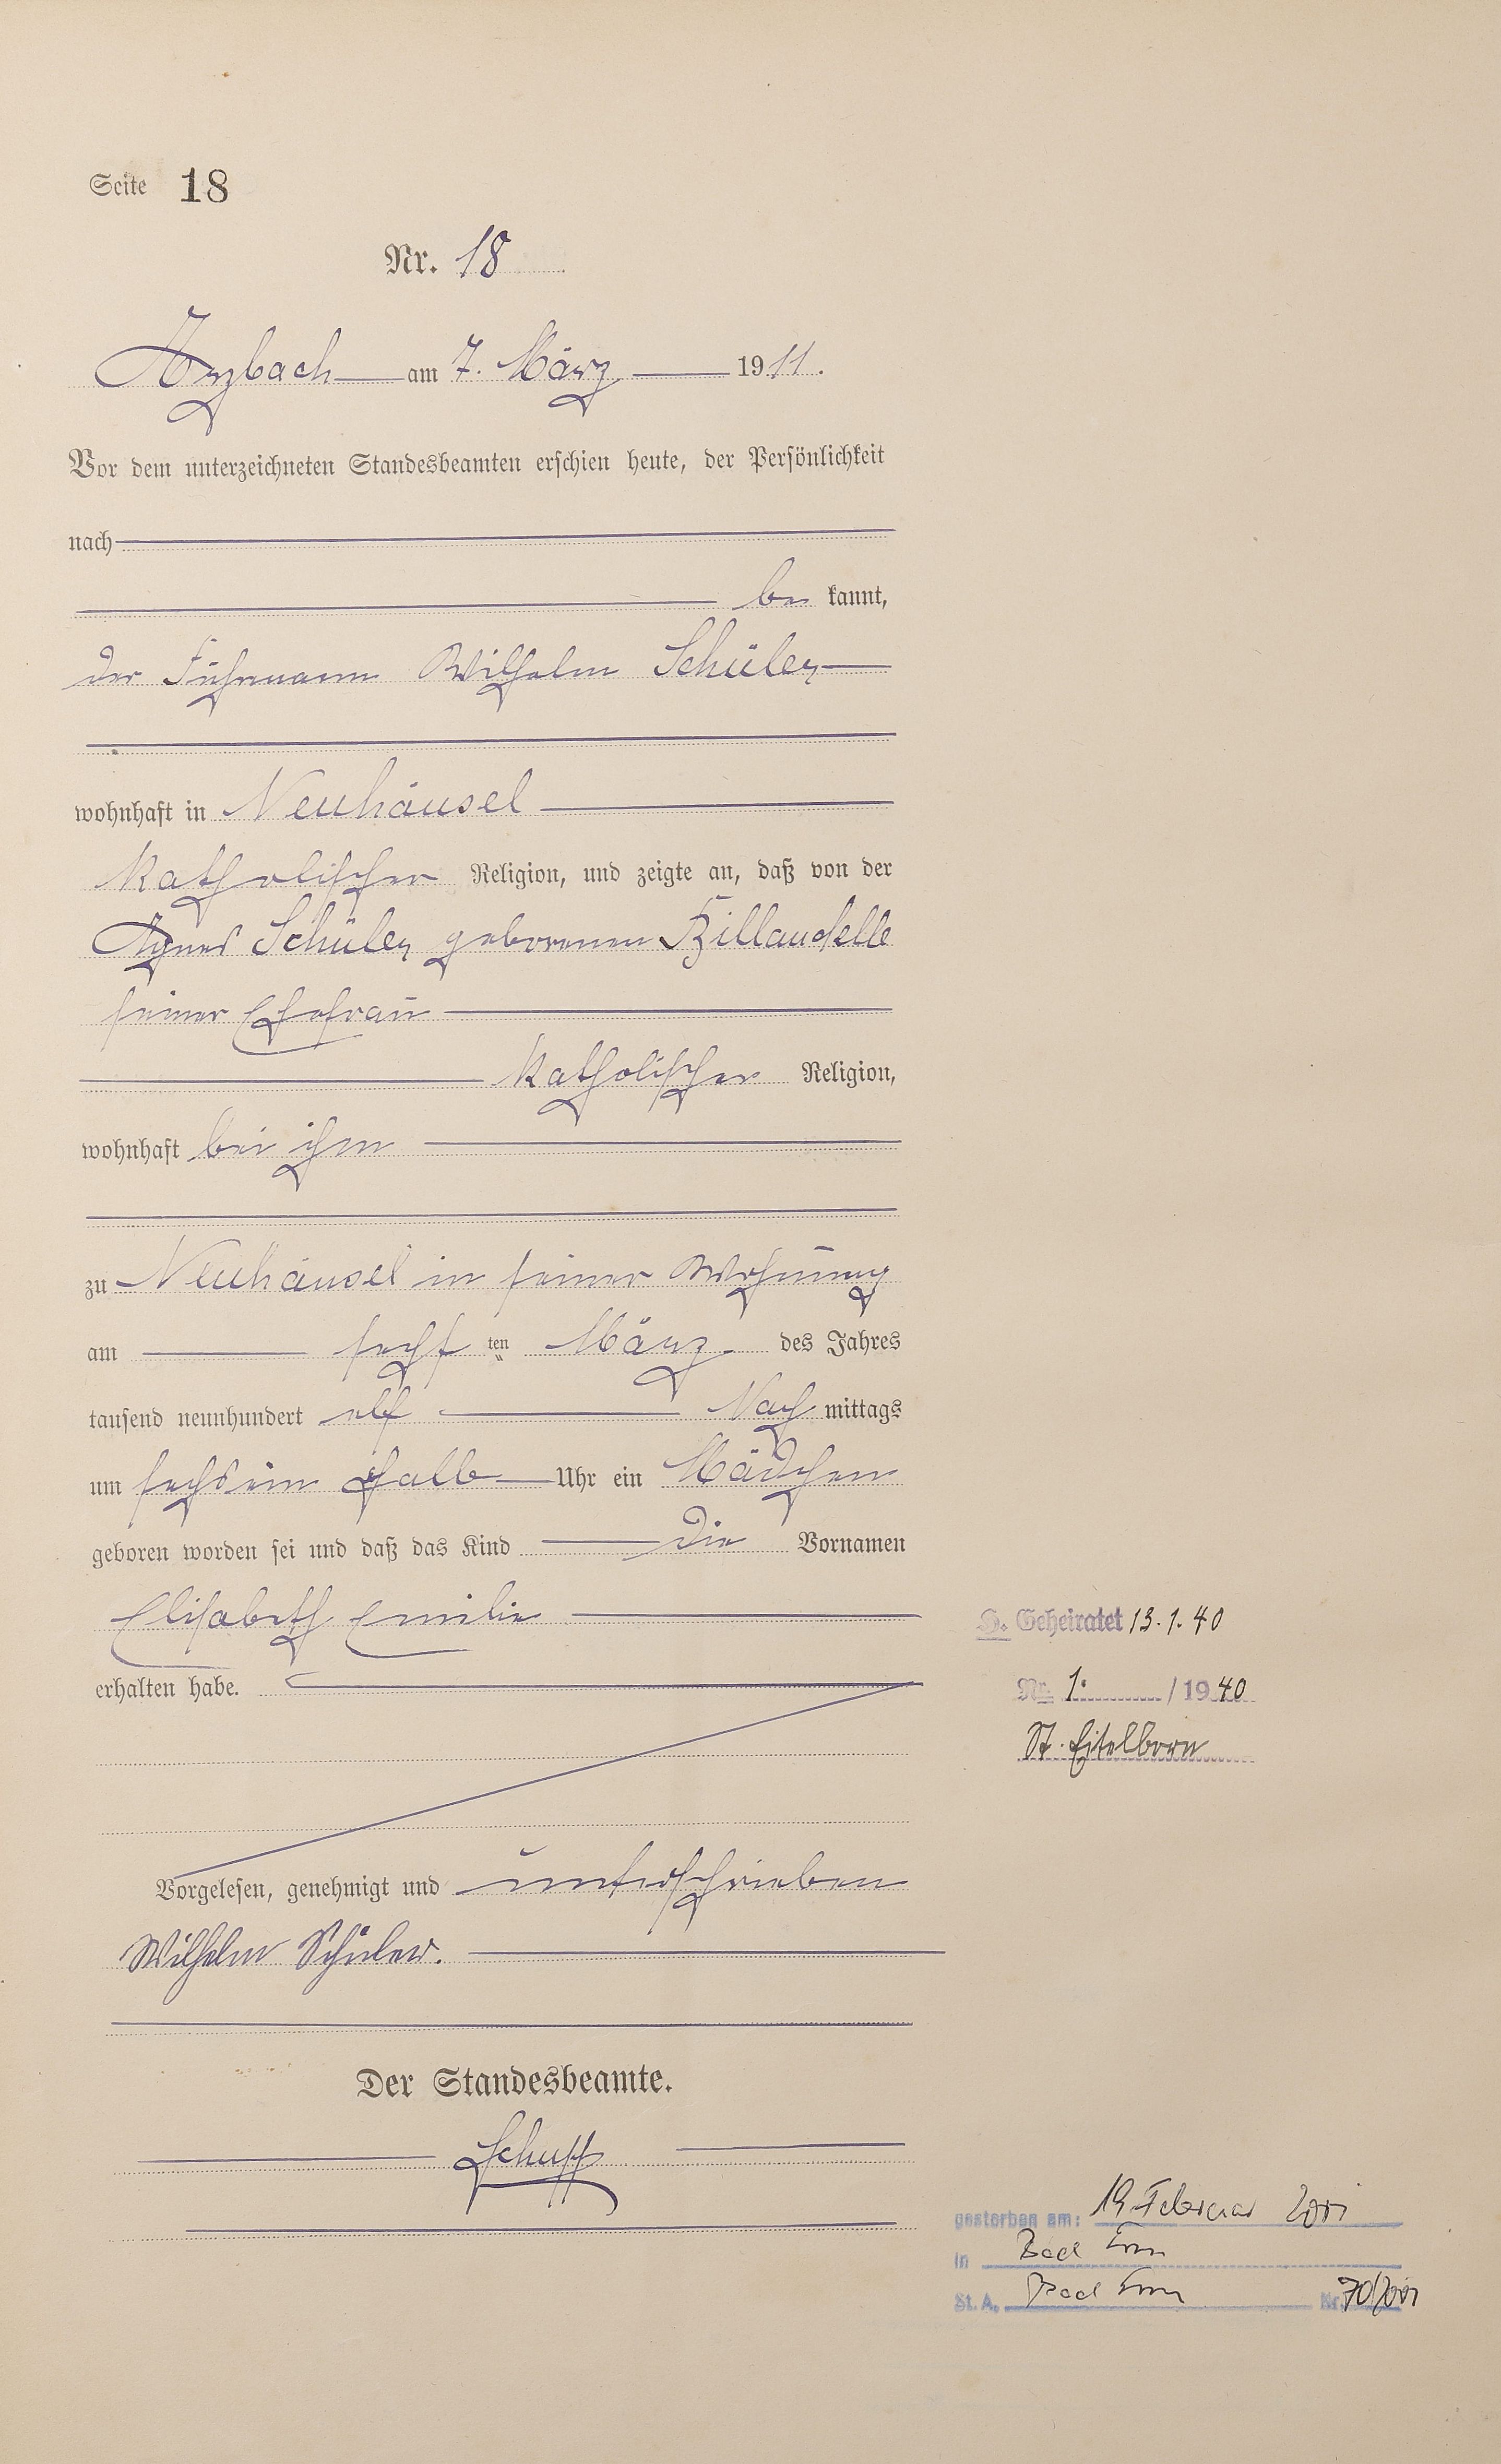 Seite 18
Nr. 18
Arzbach am 7. März 1911.
Vor dem unterzeichneten Standesbeamten erschien heute, der Persönlichkeit
nach
be kannt,
der Fuhrmann Wilhelm Schüler
wohnhaft in Neuhäusel
katholischer Religion, und zeigte an, daß von der
Agnes Schüler geborenen Billaudelle
seiner Ehefrau
katholischer Religion,
wohnhaft bei ihm
zu Neuhäusel in seiner Wohnung
am sechs ten März des Jahres
tausend neunhundert elf Nach mittags
um sechs ein halb Uhr ein Mädchen
geboren worden sei und daß das Kind die Vornamen
Elisabeth Emilie
erhalten habe.
Vorgelesen, genehmigt und unterschrieben
Wilhelm Schüler.
Der Standesbeamte.
Schupp
H. Geheiratet 13.1.40
Nr. 1. / 1940
St. Eitelborn
gestorben am: 19. Februar 2001
in Bad Ems
St. A. Bad Ems Nr. 70/2001